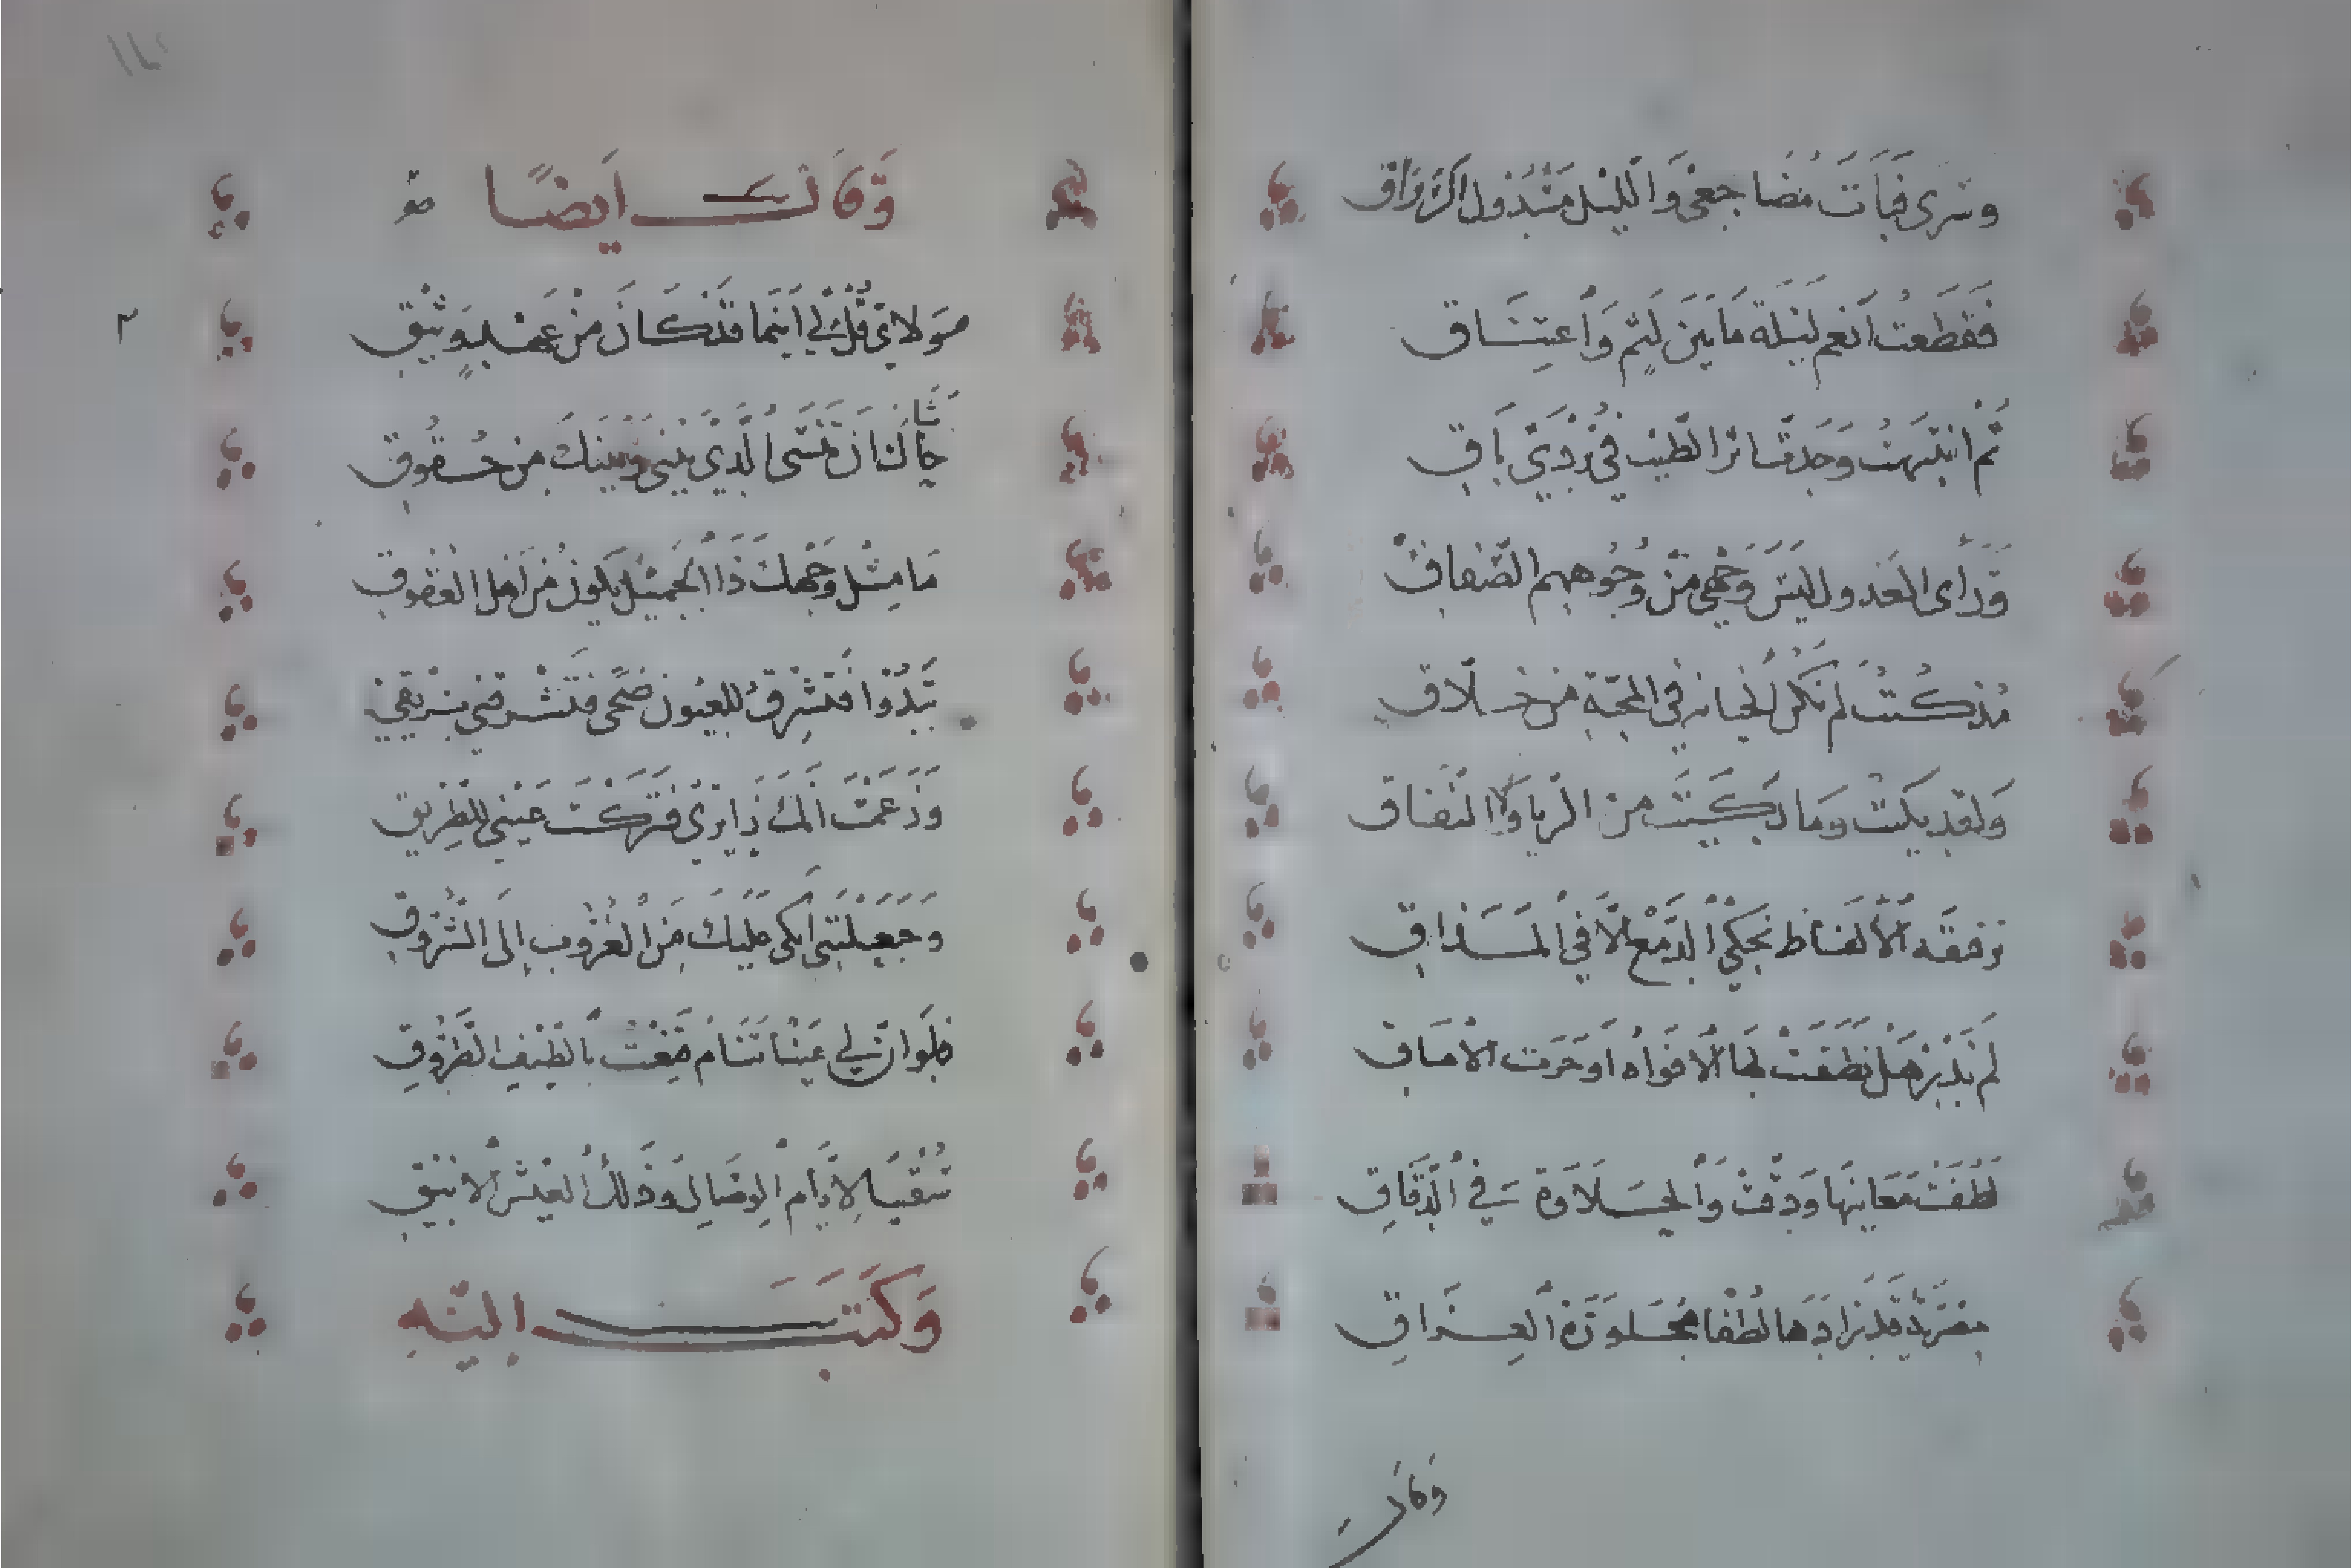 وسرى فبات مضاجعي والليل مسدول الرواق
فقطعت أنعم ليلة ما بين لثم واعتناق
ثم انتبهت وجدت اثر الطيب في بردي باق
ورأى العذول ليس وجهي من وجوههم الصفاق
مذ كنت لم تكن الخيانة في المحبة من خلاق
ولقد بكت وما بكيت من الريا ولا النفاق
برقيقة الألفاظ تحكي الدمع إلا في المذاق
لم تدر هل نطقت بها الأفواه أو جرت الاماق
لطفت معانيها ودقت والحلاوة في الدقاق
مصرية قد زادها لطفا مجاورة العراق
وقال
وقال أيضا
مولاي قل لي أينما قد كان من عهد وثيق
حاشاك أن تنسى الذي بيني وبينك من حقوق
ما مثل وجهك ذا الجميل يكون من أهل العقوق
تبدوا فتشرق للعيون ضحى فتشرقني بريقي
وزعمت أنك زايري فتركت عيني للطريق
وجعلتني أبكي عليك من الغروب إلى الشروق
فلو ان لي عينا تنام قنعت بالطيف الطروق
سقيا لايام الوصال وذلك العيش الانيق
وكتب اليه